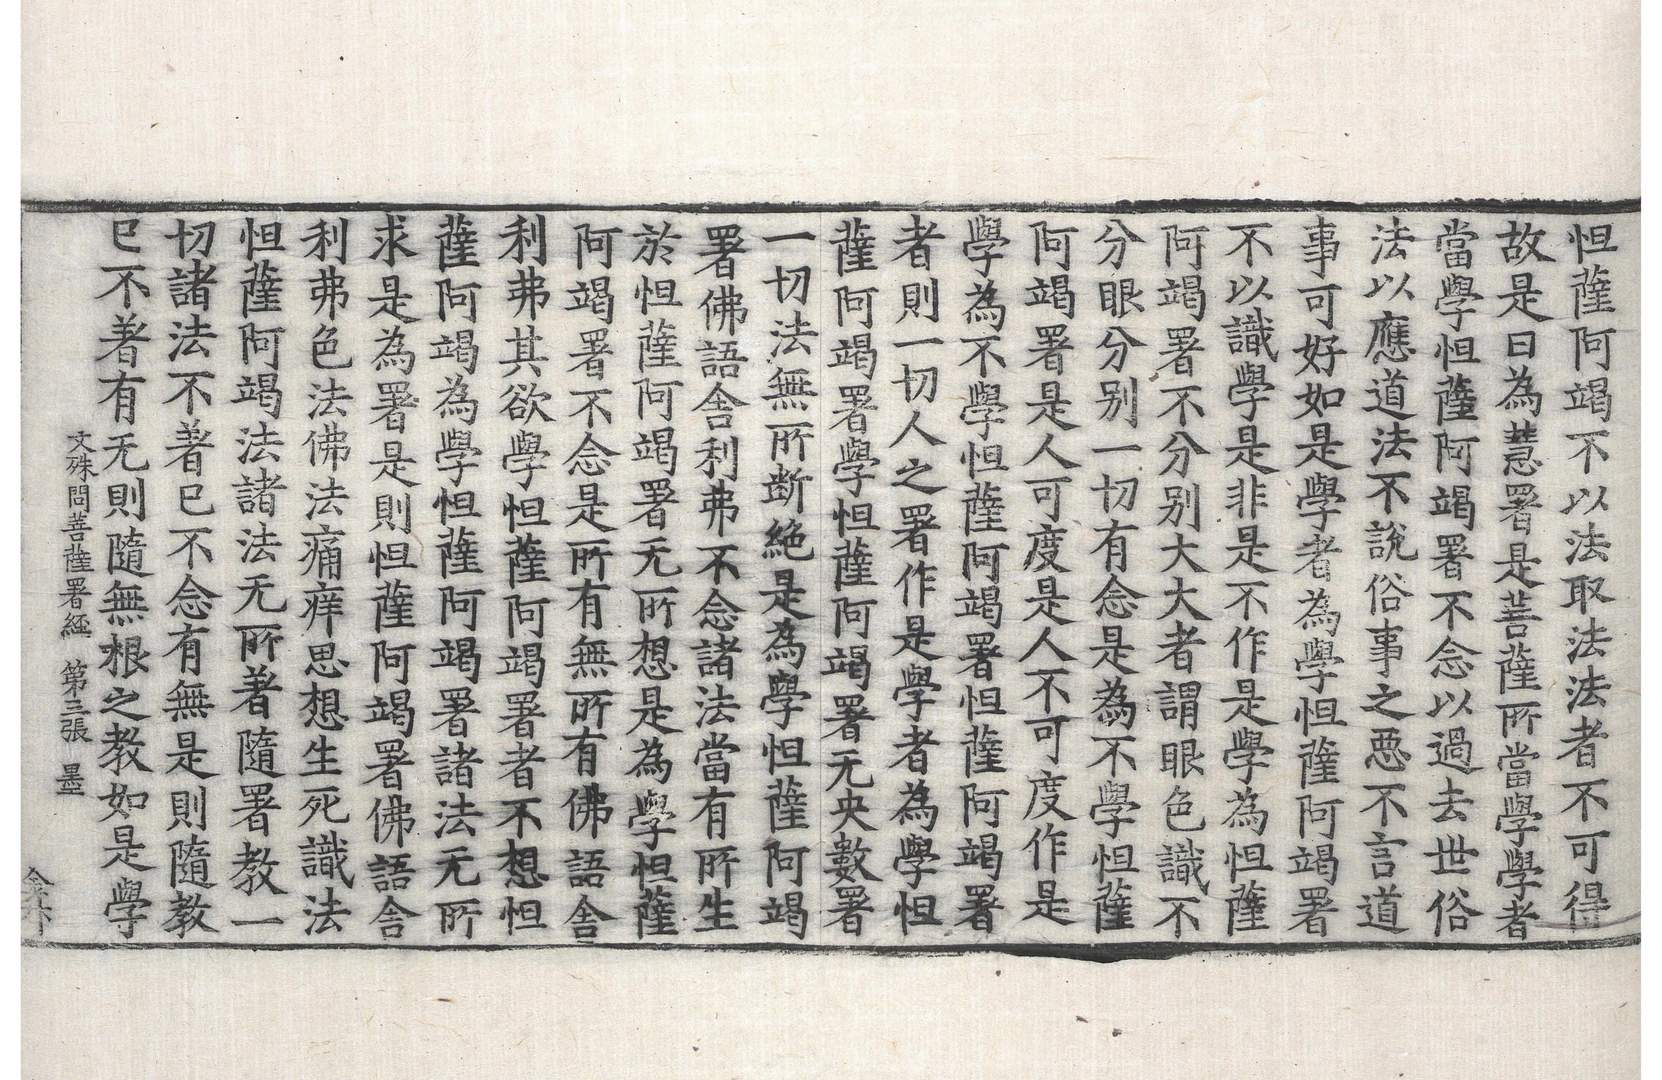 怛薩阿竭不以法取法法者不可得
故是曰為慧署是菩薩所當學學者
當學怛薩阿竭署不念以過去世俗
法以應道法不說俗事之惡不言道
事可好如是學者為學怛薩阿竭署
不以識學是非是不作是學為怛薩
阿竭署不分別大大者謂眼色識不
分眼分別一切有念是為不學怛薩
阿竭署是人可度是人不可度作是
學為不學怛薩阿竭署怛薩阿竭署
者則一切人之署作是學者為學怛
薩阿竭署學怛薩阿竭署无央數署
一切法無所斷絕是為學怛薩阿竭
署佛語舍利弗不念諸法當有所生
於怛薩阿竭署无所想是為學怛薩
阿竭署不念是所有無所有佛語舍
利弗其欲學怛薩阿竭署者不想怛
薩阿竭為學怛薩阿竭署諸法无所
求是為署是則怛薩阿竭署佛語舍
利弗色法佛法痛痒思想生死識法
怛薩阿竭法諸法无所著隨署教一
切諸法不著已不念有無是則隨教
已不著有无則隨無根之教如是學
文殊問菩薩署經 第三張 墨